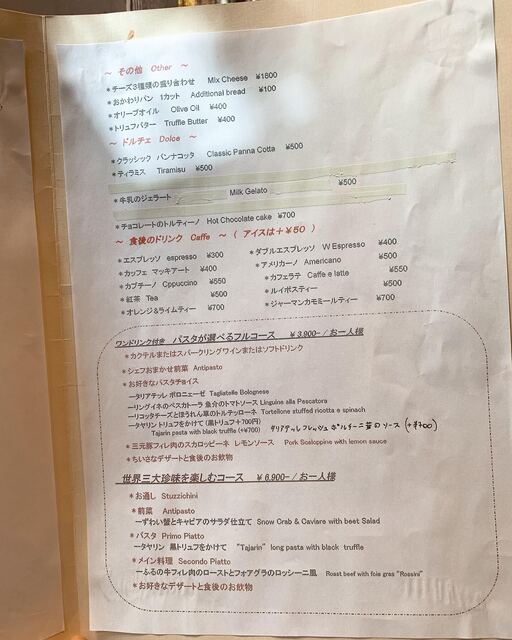 ~ その他 Other ~
*チーズ3種類の盛り合わせ Mix Cheese ¥1800
*おかわりパン 1カット Additional bread ¥100
*オリーブオイル Olive Oil ¥400
*トリュフバター Truffle Butter ¥400
~ ドルチェ Dolce ~
*クラッシック パンナコッタ Classic Panna Cotta ¥500
*ティラミス Tiramisu ¥500
*牛乳のジェラート Milk Gelato ¥500
*チョコレートのトルティーノ Hot Chocolate cake ¥700
~ 食後のドリンク Caffe ~ ( アイスは+¥50 )
*エスプレッソ espresso ¥300 *ダブルエスプレッソ W Espresso ¥400
*カッフェ マッキアート ¥400 *アメリカーノ Americano ¥500
*カプチーノ Cppuccino ¥550 *カフェラテ Caffe e latte ¥550
*紅茶 Tea ¥500 *ルイボスティー ¥500
*オレンジ&ライムティー ¥700 *ジャーマンカモミールティー ¥700
ワンドリンク付き パスタが選べるフルコース ¥3,900-/お一人様
*カクテルまたはスパークリングワインまたはソフトドリンク
*シェフおまかせ前菜 Antipasto
*お好きなパスタチョイス
ータリアテッレ ボロニェーゼ Tagliatelle Bolognese
ーリングイネのペスカトーラ 魚介のトマトソース Linguine alla Pescatora
ーリコッタチーズとほうれん草のトルテッローネ Tortellone stuffed ricotta e spinach
ータヤリン トリュフをかけて (黒トリュフ+700円)
Tajarin pasta with black truffle (+¥700) タリアテッレ フレッシュポルチーニ茸のソース (+¥700)
*三元豚フィレ肉のスカロッピーネ レモンソース Pork Scaloppine with lemon sauce
*ちいさなデザートと食後のお飲物
世界三大珍味を楽しむコース ¥6,900-/お一人様
*お通し Stuzzichini
*前菜 Antipasto
ーずわい蟹とキャビアのサラダ仕立て Snow Crab & Caviare with beet Salad
*パスタ Primo Piatto
ータヤリン 黒トリュフをかけて "Tajarin" long pasta with black truffle
*メイン料理 Secondo Piatto
ーふるの牛フィレ肉のローストとフォアグラのロッシーニ風 Rosst beef with fois gras "Rossini"
*お好きなデザートと食後のお飲物